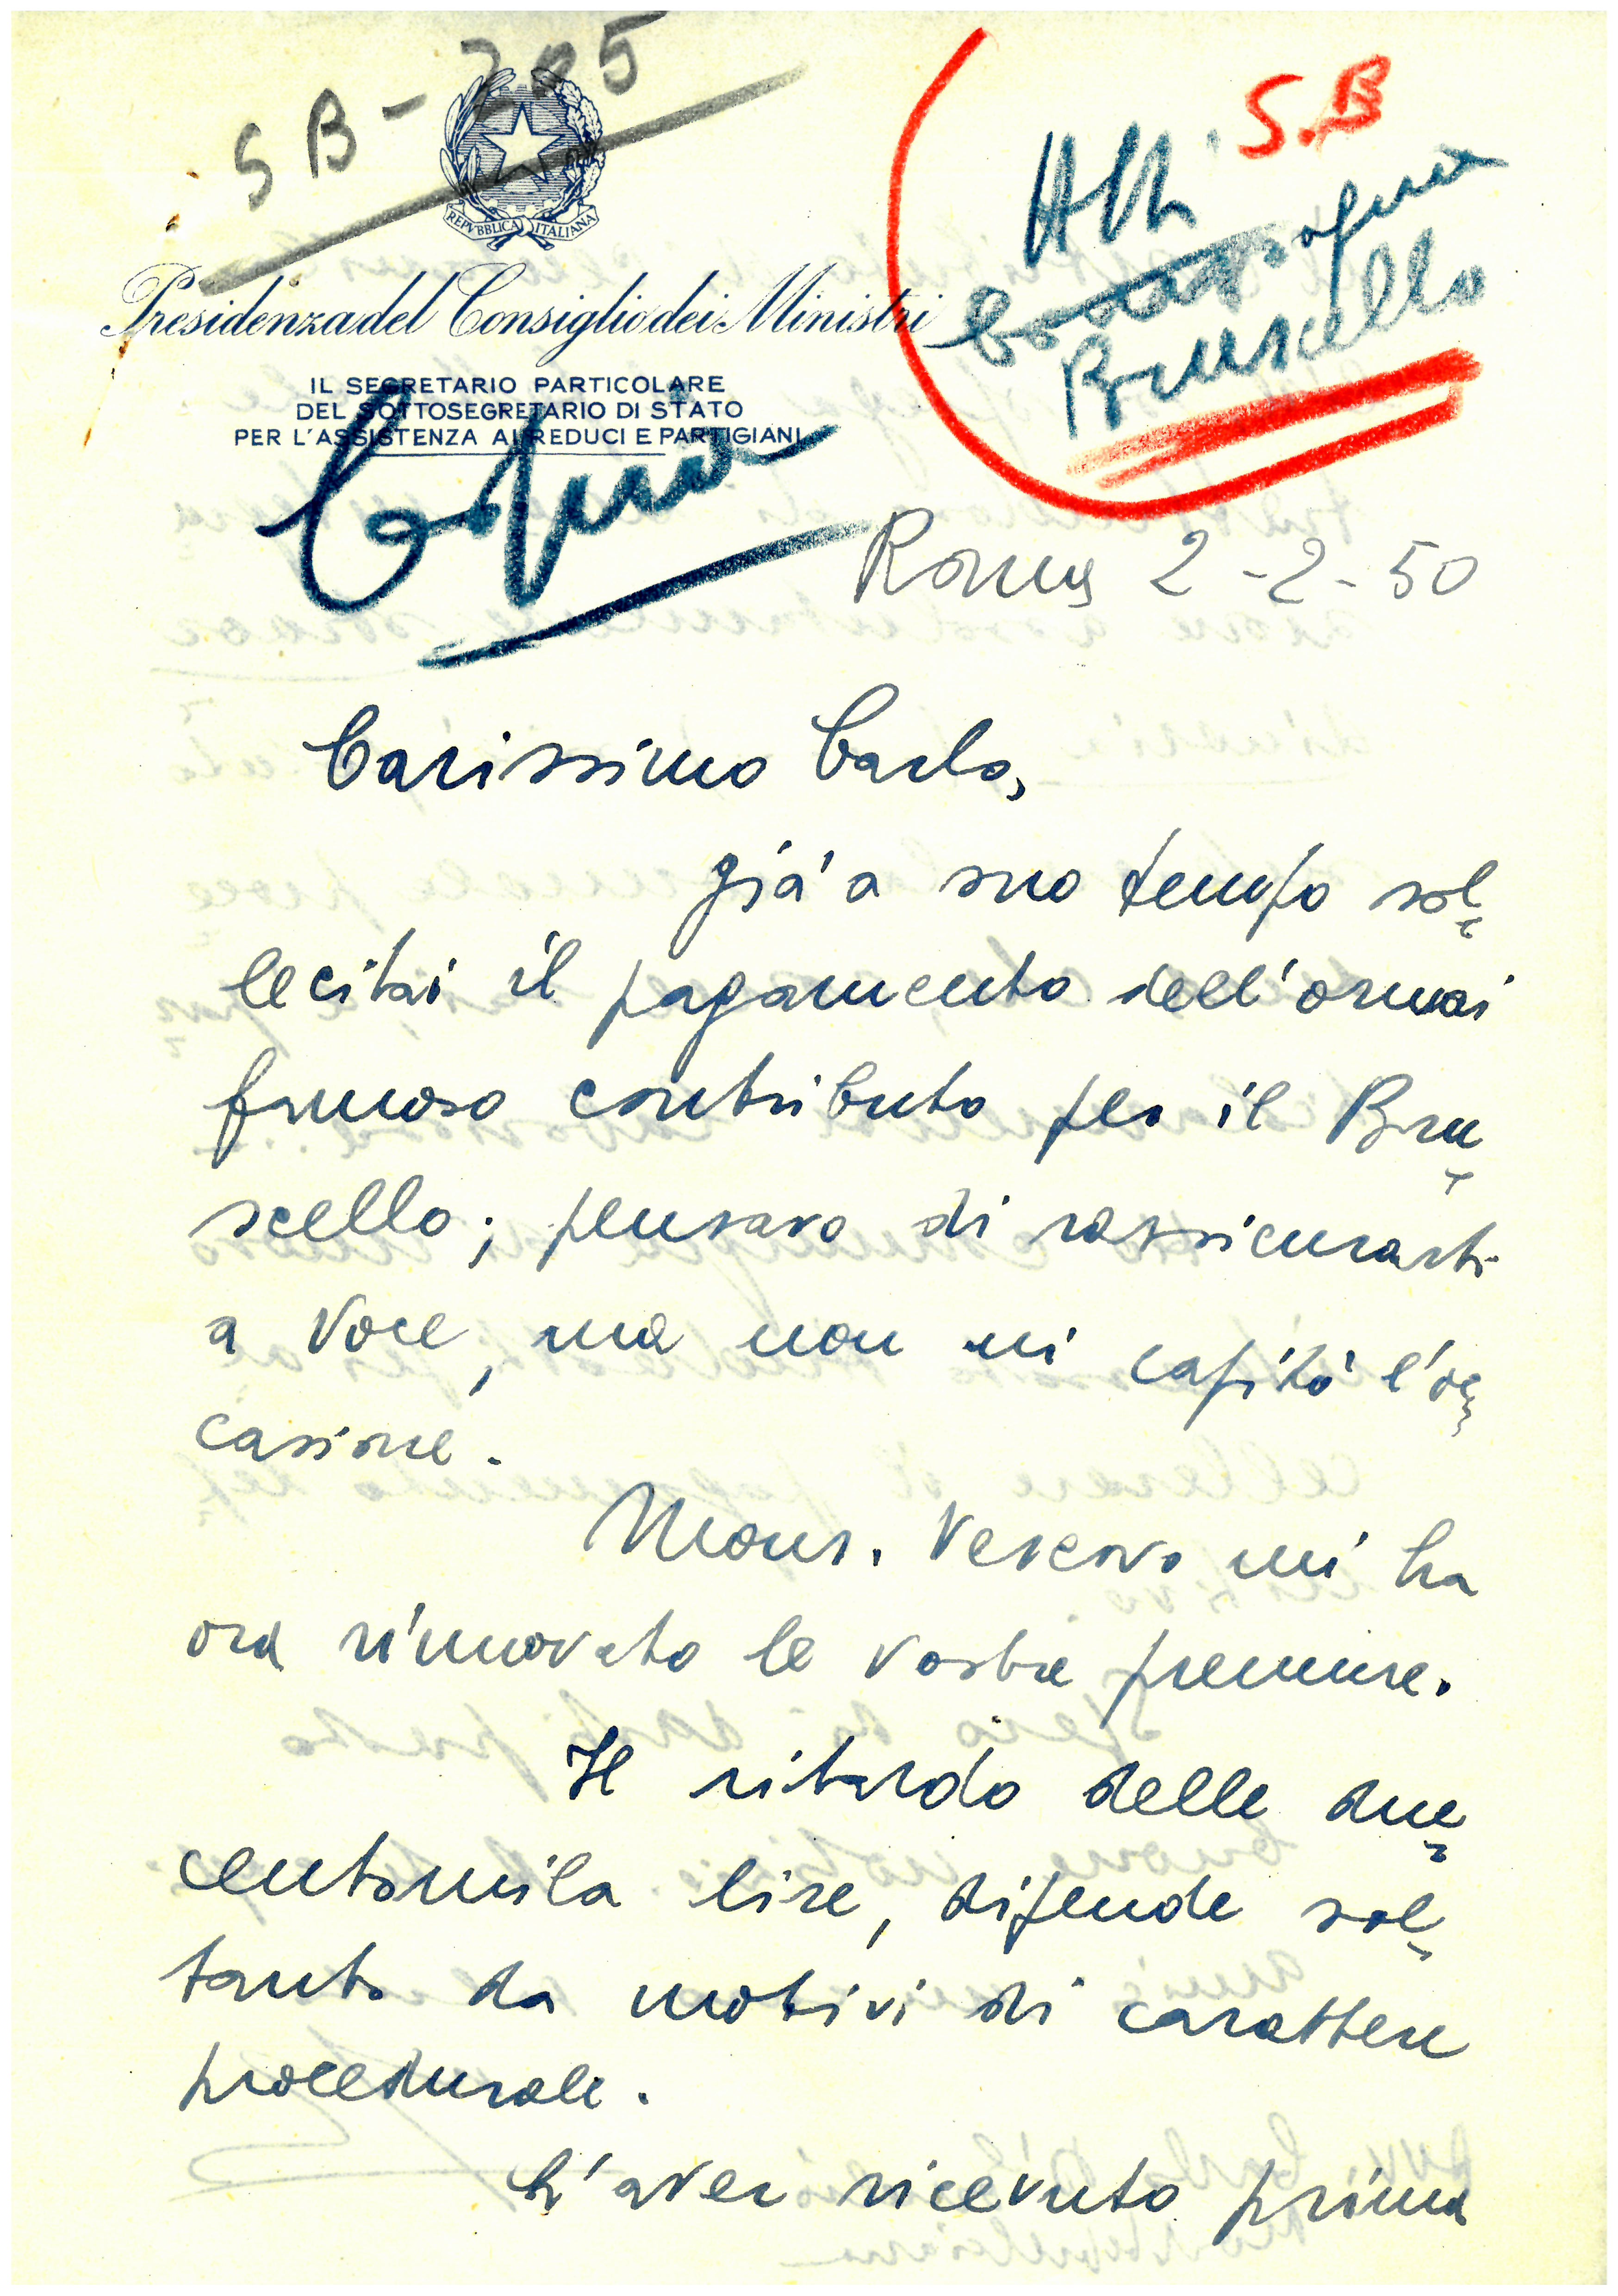 SB - 205
S.B
Att.
Bruscello
REPVBBLICA ITALIANA
Presidenza del Consiglio dei Ministri
IL SEGRETARIO PARTICOLARE
DEL SOTTOSEGRETARIO DI STATO
PER L'ASSISTENZA AI REDUCI E PARTIGIANI
Copia
Roma 2-2-50
Carissimo Carlo,
già a suo tempo sol=
lecitai il pagamento dell'ormai
famoso contributo per il Bru=
scello; pensavo di rassicurarti
a voce, ma non mi capitò l'oc=
casione.
Mons. Vescovo mi ha
ora rinnovato le vostre premure.
Il ritardo delle due=
centomila lire, dipende sol=
tanto da motivi di carattere
procedurale.
L'aver ricevuto prima